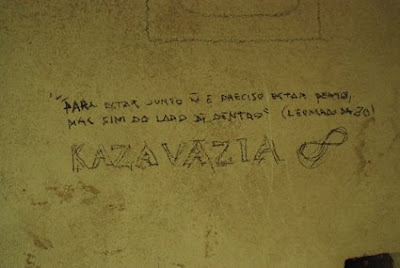 "PARA ESTAR JUNTO Ñ É PRECISO ESTAR PERTO,
MAS SIM DO LADO DE DENTRO" (LEONARDO DA
KAZAVAZIA